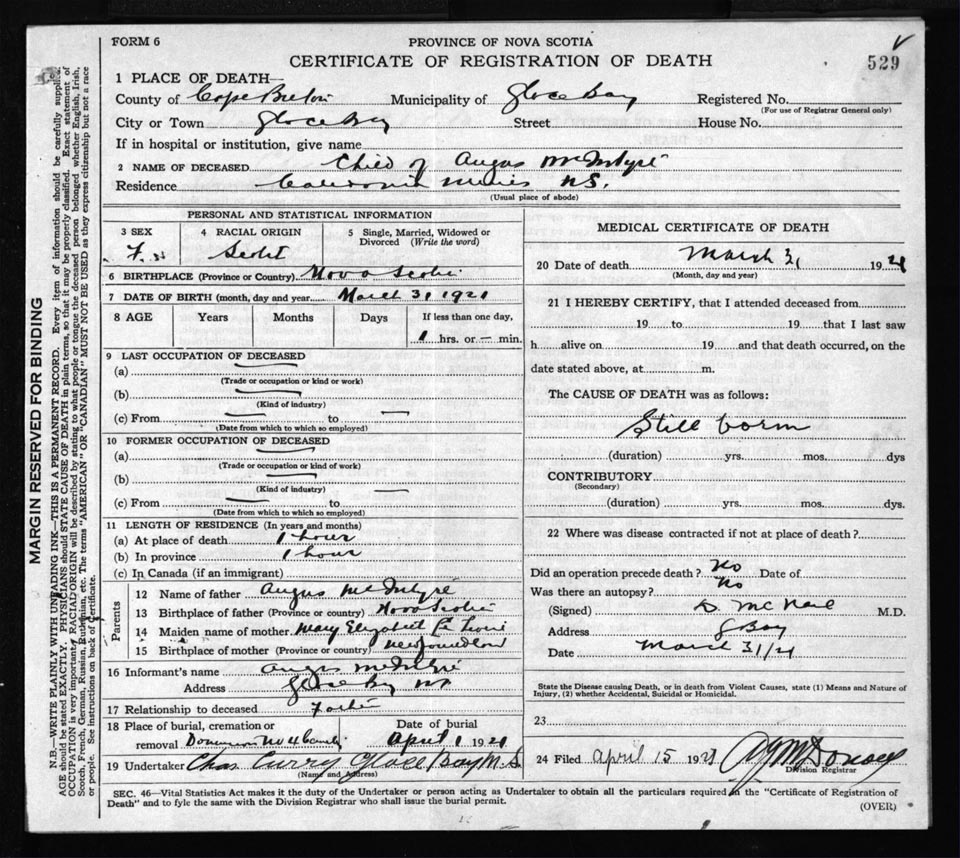 FORM 6
PROVINCE OF NOVA SCOTIA
CERTIFICATE OF REGISTRATION OF DEATH
529
1 PLACE OF DEATH—
County of Cape Breton Municipality of Glace Bay Registered No.
(For use of Registrar General only)
City or Town Glace Bay Street House No.
If in hospital or institution, give name
2 NAME OF DECEASED Child of Angus McIntyre
Residence Caledonia Mines N.S.
(Usual place of abode)
PERSONAL AND STATISTICAL INFORMATION
3 SEX 4 RACIAL ORIGIN 5 Single, Married, Widowed or Divorced (Write the word)
F.
6 BIRTHPLACE (Province or Country) Nova Scotia
7 DATE OF BIRTH (month, day and year) March 31 1921
8 AGE Years Months Days If less than one day,
1 hrs. or — min.
9 LAST OCCUPATION OF DECEASED
(a)
(Trade or occupation or kind or work)
(b)
(Kind of industry)
(c) From to —
(Date from which to which so employed)
10 FORMER OCCUPATION OF DECEASED
(a)
(Trade or occupation or kind of work)
(b)
(Kind of industry)
(c) From to —
(Date from which to which so employed)
11 LENGTH OF RESIDENCE (In years and months)
(a) At place of death 1 hour
(b) In province 1 hour
(c) In Canada (if an immigrant)
Parents
12 Name of father Angus McIntyre
13 Birthplace of father (Province or country) Nova Scotia
14 Maiden name of mother Mary Elizabeth
15 Birthplace of mother (Province or country) Newfoundland
16 Informant's name Angus McIntyre
Address Glace Bay NS
17 Relationship to deceased Father
18 Place of burial, cremation or removal Date of burial April 1 1921
19 Undertaker Chas Curry Glace Bay N.S.
(Name and Address)
MEDICAL CERTIFICATE OF DEATH
20 Date of death March 31 1921
(Month, day and year)
21 I HEREBY CERTIFY, that I attended deceased from
19 to 19 that I last saw
h alive on 19 and that death occurred, on the
date stated above, at m.
The CAUSE OF DEATH was as follows:
Still born
(duration) yrs. mos. dys
CONTRIBUTORY
(Secondary)
(duration) yrs. mos. dys.
22 Where was disease contracted if not at place of death?
Did an operation precede death? No Date of
Was there an autopsy? No
(Signed) D. McNeil M.D.
Address G Bay
Date March 31/21
State the Disease causing Death, or in death from Violent Causes, state (1) Means and Nature of
Injury, (2) whether Accidental, Suicidal or Homicidal.
23
24 Filed April 15 1921
Division Registrar
SEC. 46—Vital Statistics Act makes it the duty of the Undertaker or person acting as Undertaker to obtain all the particulars required in the "Certificate of Registration of
Death" and to fyle the same with the Division Registrar who shall issue the burial permit.
(OVER)
MARGIN RESERVED FOR BINDING
N.B.—WRITE PLAINLY WITH UNFADING INK—THIS IS A PERMANENT RECORD. Every item of information should be carefully supplied.
AGE should be stated EXACTLY. PHYSICIANS should STATE CAUSE OF DEATH in plain terms, so that it may be properly classified. Exact statement of
OCCUPATION is very important. RACIAL ORIGIN will be described by stating to what people or tongue the deceased person belonged whether English, Irish,
Scotch, French, German, Russian, Ruthenian, etc. The terms "AMERICAN" OR "CANADIAN" MUST NOT BE USED as they express citizenship but not a race
or people. See instructions on back of Certificate.